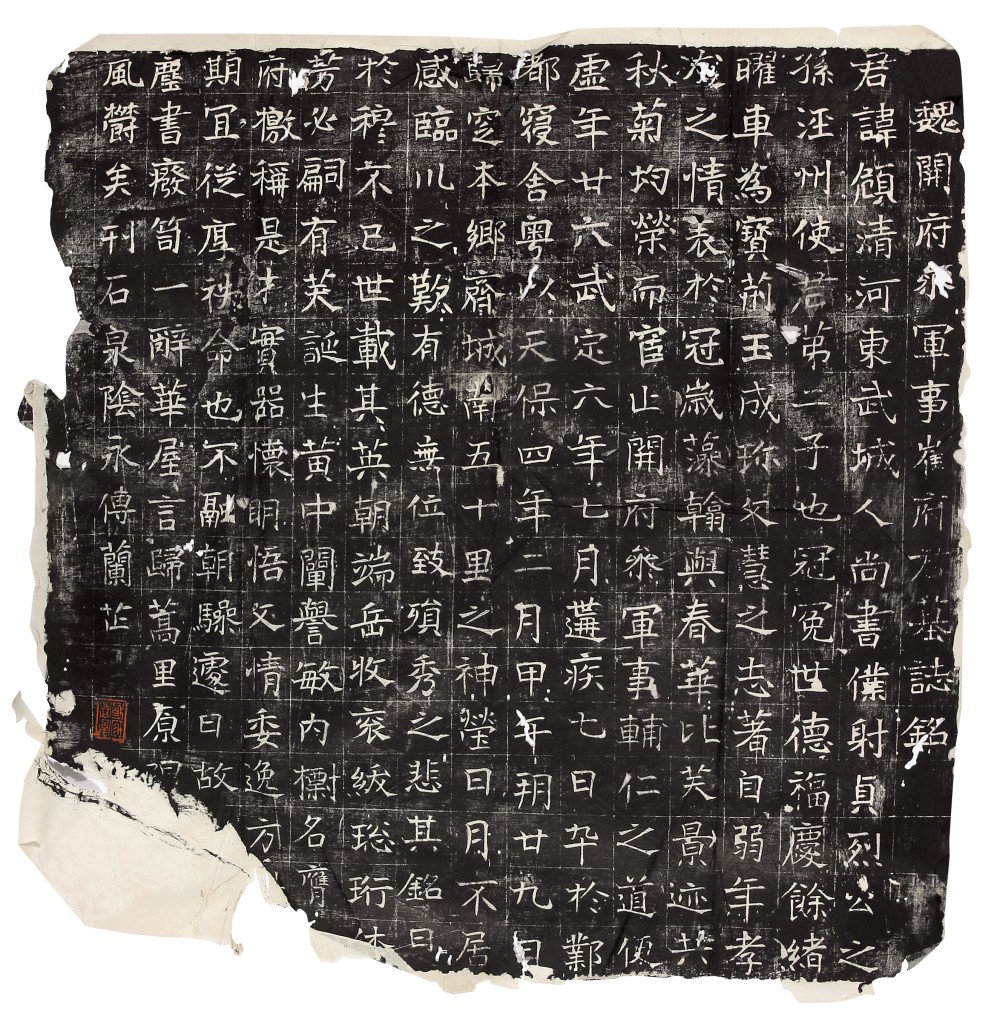 魏開府參軍事崔府君墓誌銘
君諱頠清河東武城人尚書僕射貞烈公之
孫涇州使君弟二子也冠冕世德福慶餘緒
曜車為寶荊玉成珎夂慧之志著自弱年孝
友之情表於冠歲藻翰與春華比芙景迹共
秋菊均榮而宦止開府叅軍事輔仁之道便
虛年廿六武定六年七月遘疾七日卒於鄴
都寢舍粵以天保四年二月甲午朔廿九日
歸窆本鄉齊城南五十里之神塋日月不居
感臨川之歎有德無位致殞秀之悲其銘曰
於穆不已世載其英朝端岳牧衮紱珩
芳必嗣有芙誕生黃中闡譽敏內檦名膺
府檄稱是才實器懷明悟夂情委逸方
期宜從厚秩命也不融朝驂遽日故
塵書廢笥一辭華屋言歸蒿里原
風欝矣刊石泉陰永傳蘭芷